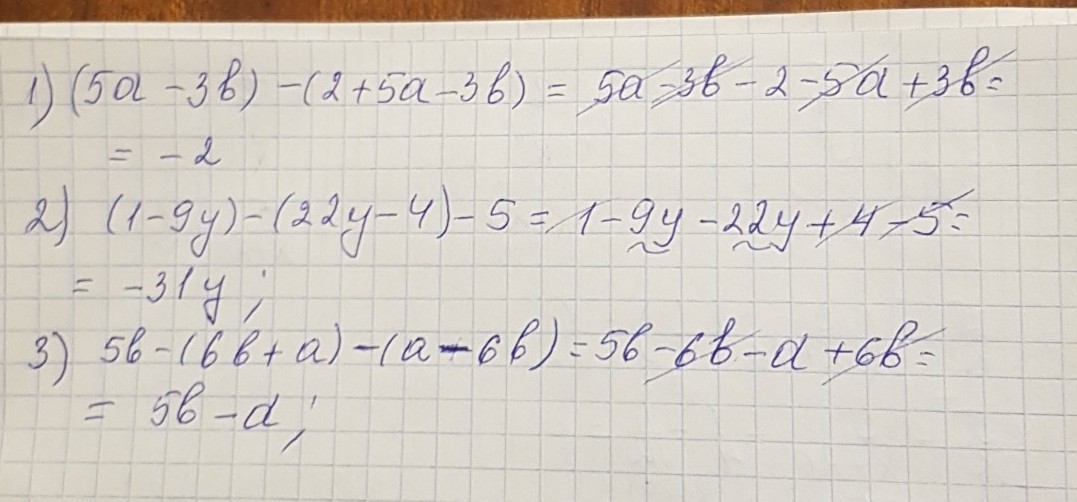 1) (5a - 3b) - (2 + 5a - 3b) = 5a - 3b - 2 - 5a + 3b =
= - 2
2) (1 - 9y) - (22y - 4) - 5 = 1 - 9y - 22y + 4 - 5 =
= - 31y ;
3) 5b - (6b + a) - (a - 6b) = 5b - 6b - a + 6b =
= 5b - a ;